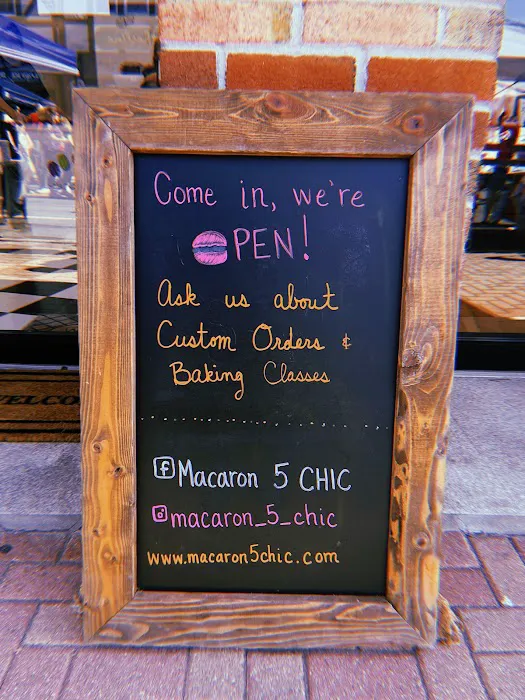 Come in, we're
OPEN!
Ask us about
Custom Orders &
Baking Classes
Macaron 5 CHIC
macaron_5_chic
www.macaron5chic.com
WELCO